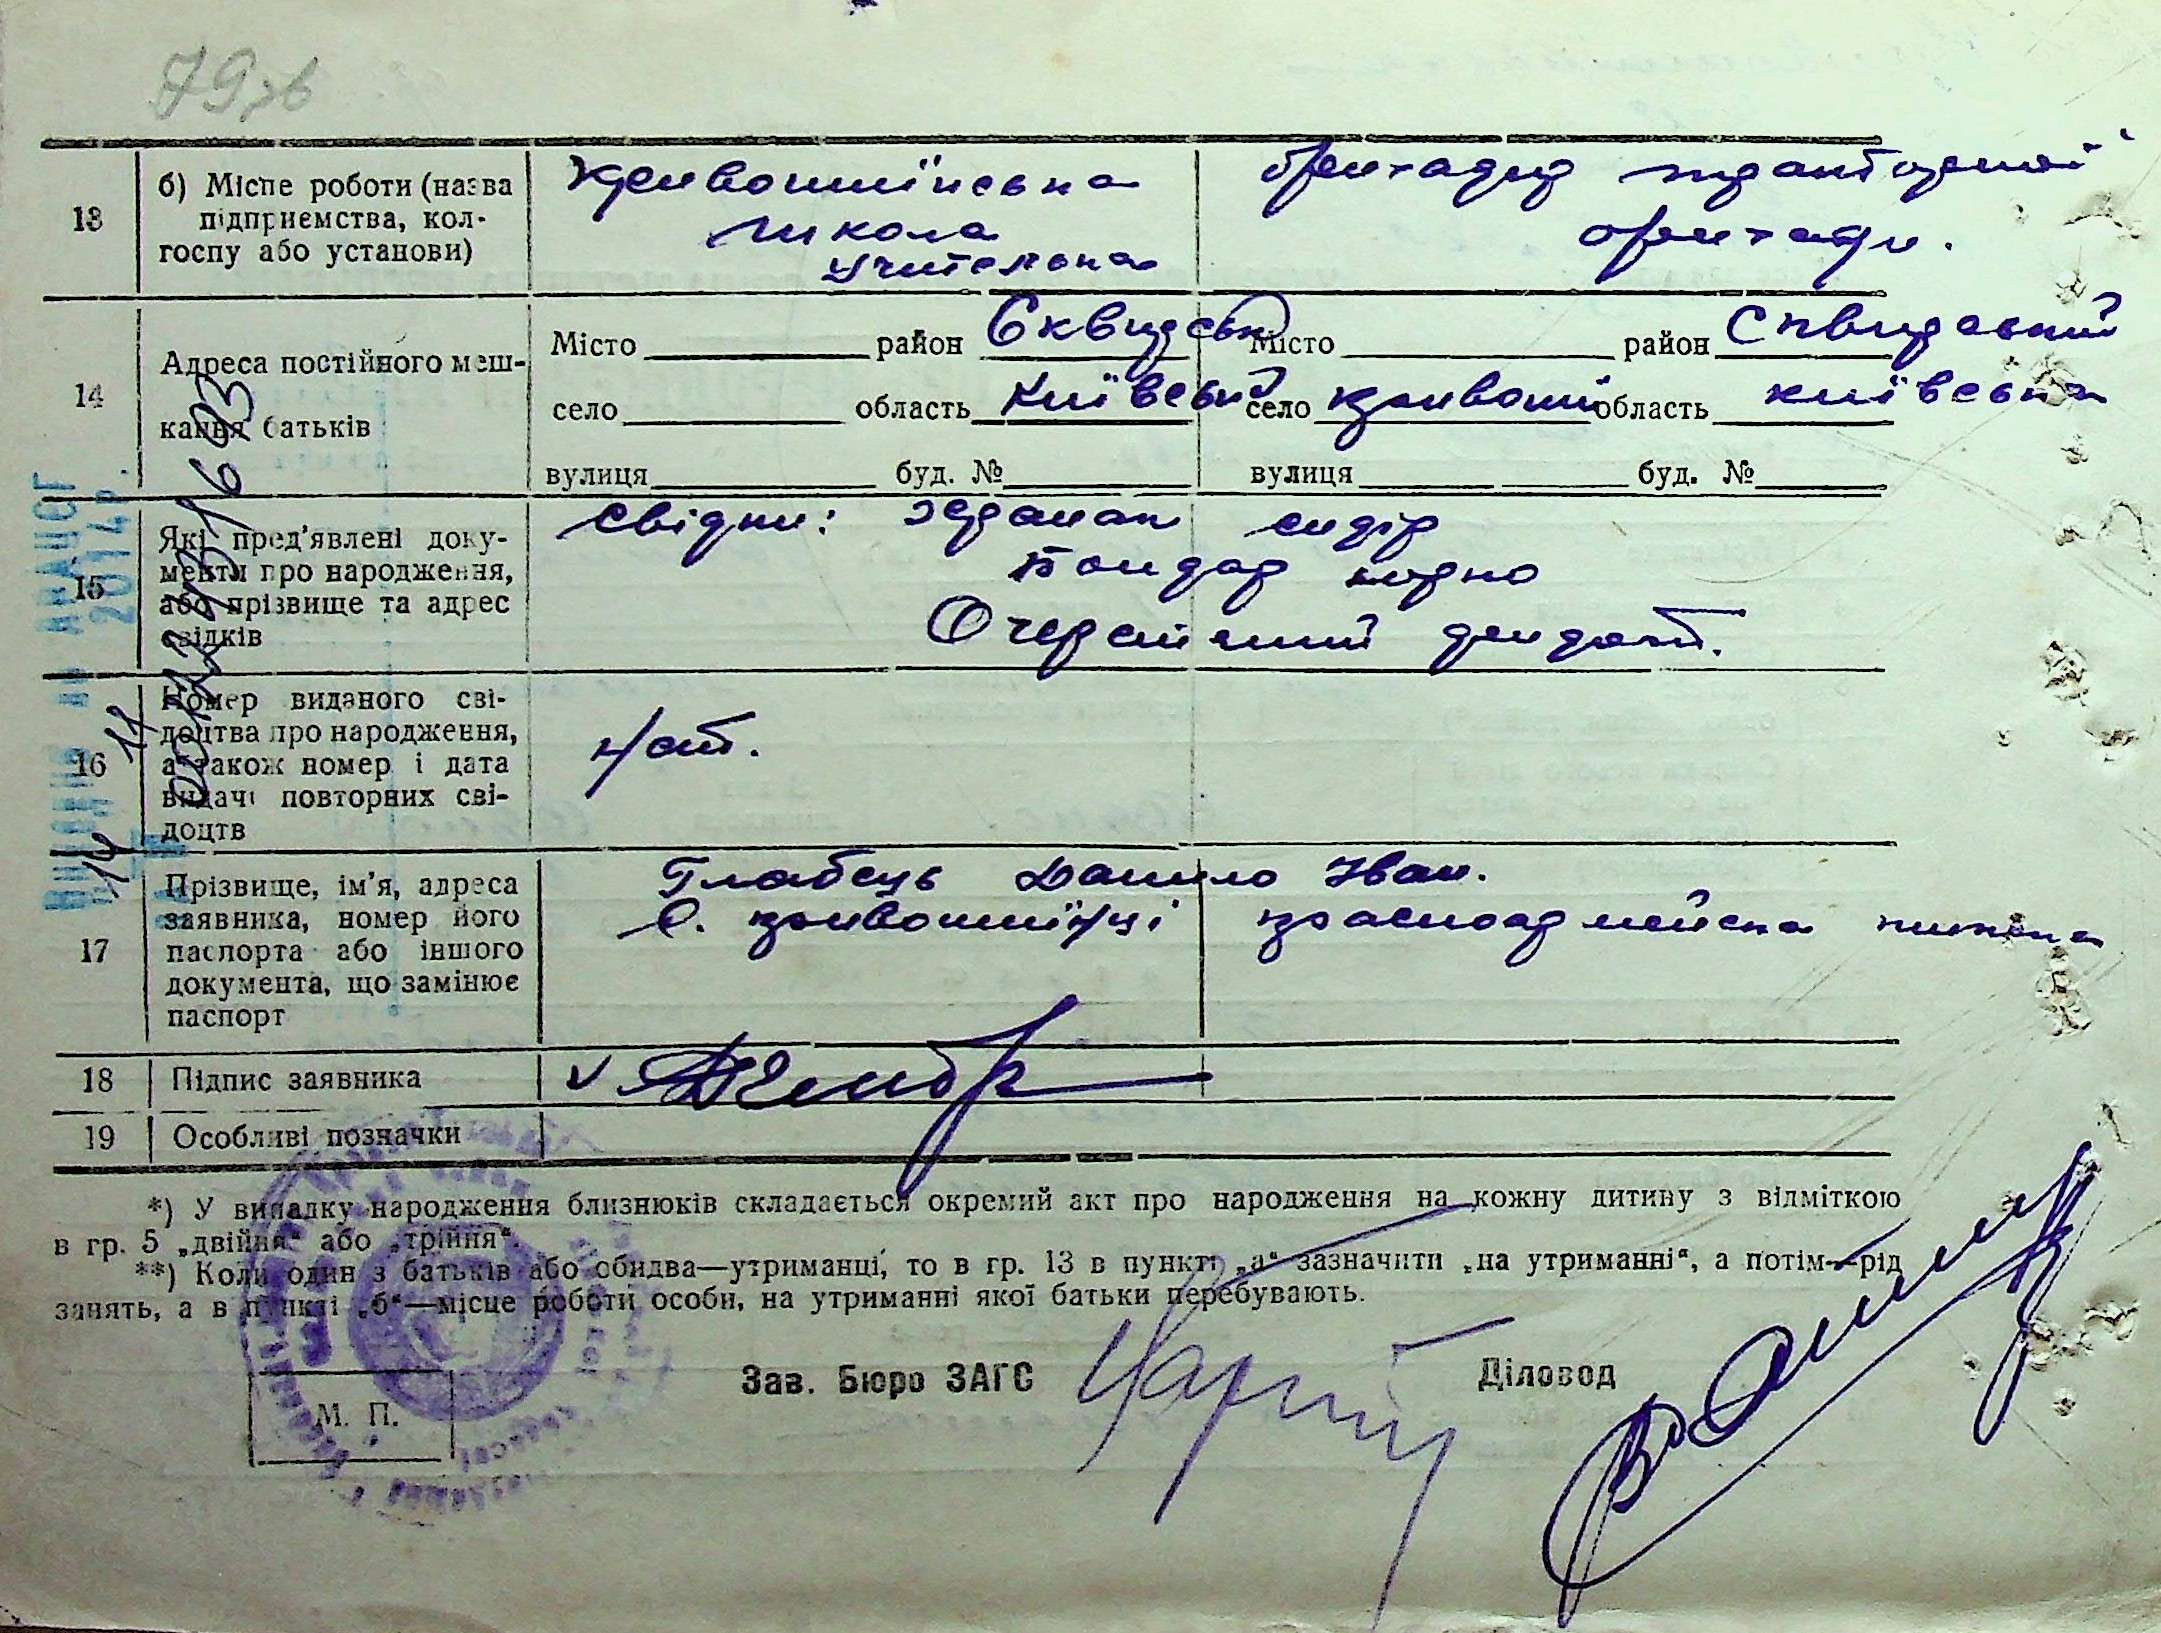 79зв
13 б) Місце роботи (назва підприємства, колгоспу або установи)
Кривошиїнська
школа
учителька
бригадир тракторної
бригади.
14 Адреса постійного мешкання батьків
Місто район Сквирськ Місто район Сквирський
село область Київськ село Кривоши область Київська
вулиця буд. № вулиця буд. №
15 Які пред'явлені документи про народження, або прізвище та адрес свідків
свідки: сидір
Бондар
16 Номер виданого свідоцтва про народження, а також номер і дата видачі повторних свідоцтв
17 Прізвище, ім'я, адреса заявника, номер його паспорта або іншого документа, що замінює паспорт
Данило Іван.
с. Кривошиїнці красноармейска книжка
18 Підпис заявника
19 Особливі позначки
*) У випадку народження близнюків складається окремий акт про народження на кожну дитину з відміткою
в гр. 5 „двійня“ або „трійня“.
**) Коли один з батьків або обидва—утриманці, то в гр. 13 в пункті „а“ зазначити „на утриманні“, а потім—рід
занять, а в пункті „б“—місце роботи особи, на утриманні якої батьки перебувають.
Зав. Бюро ЗАГС Діловод
М. П.
2014р.